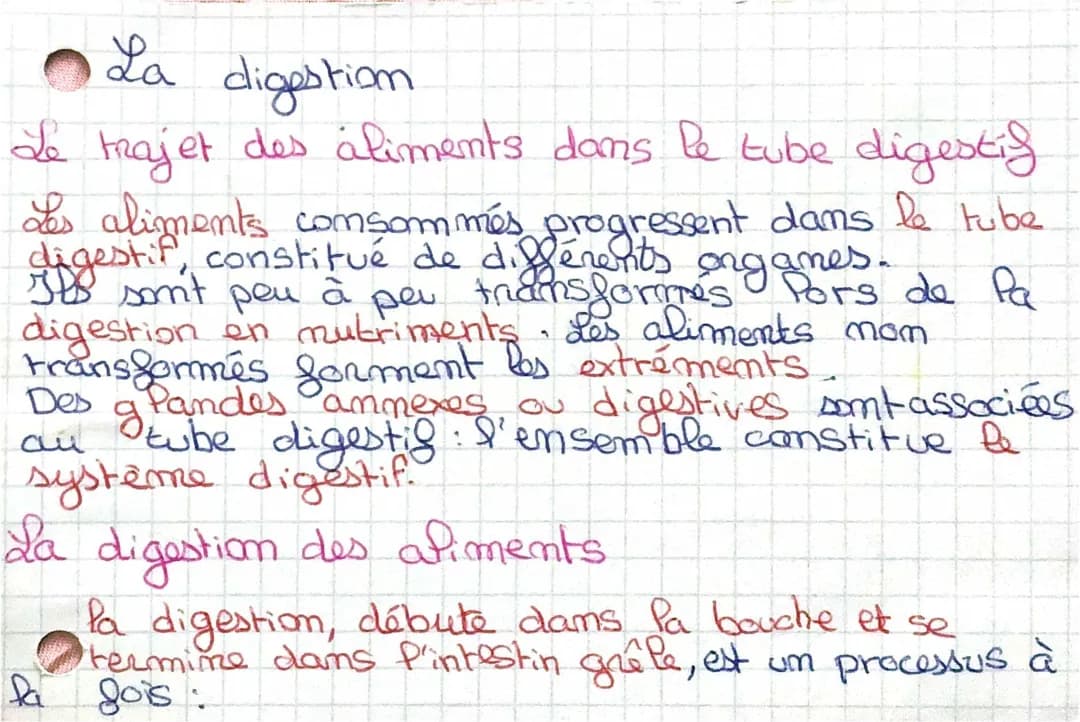 La digestion
Le trajet des aliments dans le tube digestif
Les aliments consommés progressent dans le tube
digestif, constitué de différents organes.
Ils sont peu à peu transformés lors de la
digestion en nutriments. Les aliments non
transformés forment les extréments
Des glandes annexes ou digestives sont associées
au tube digestif : l'ensemble constitue le
système digestif.
La digestion des aliments
la digestion, débute dans la bouche et se
termine dans l'intestin grêle, est un processus à
la fois :